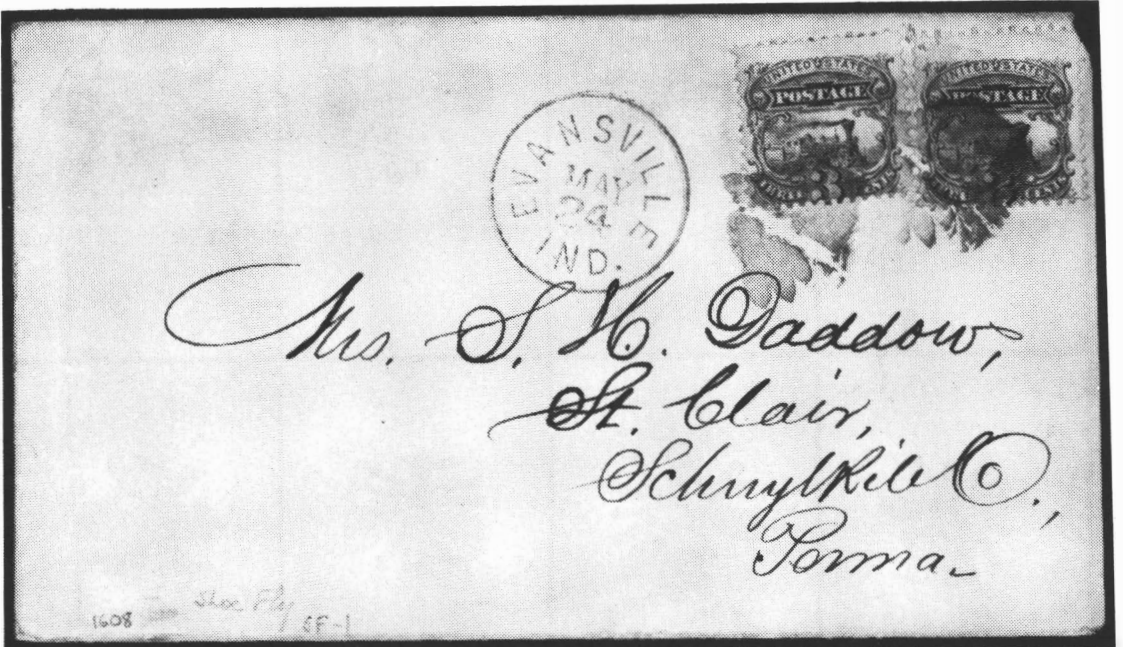 UNITED STATES UNITED STATES
POSTAGE POSTAGE
3 3 CENTS
EVANSVILLE
MAY
24
IND.
Mrs. S. H. Daddow,
St. Clair,
Schuylkill Co.,
Penna.
1608 Shoe Fly SF-1